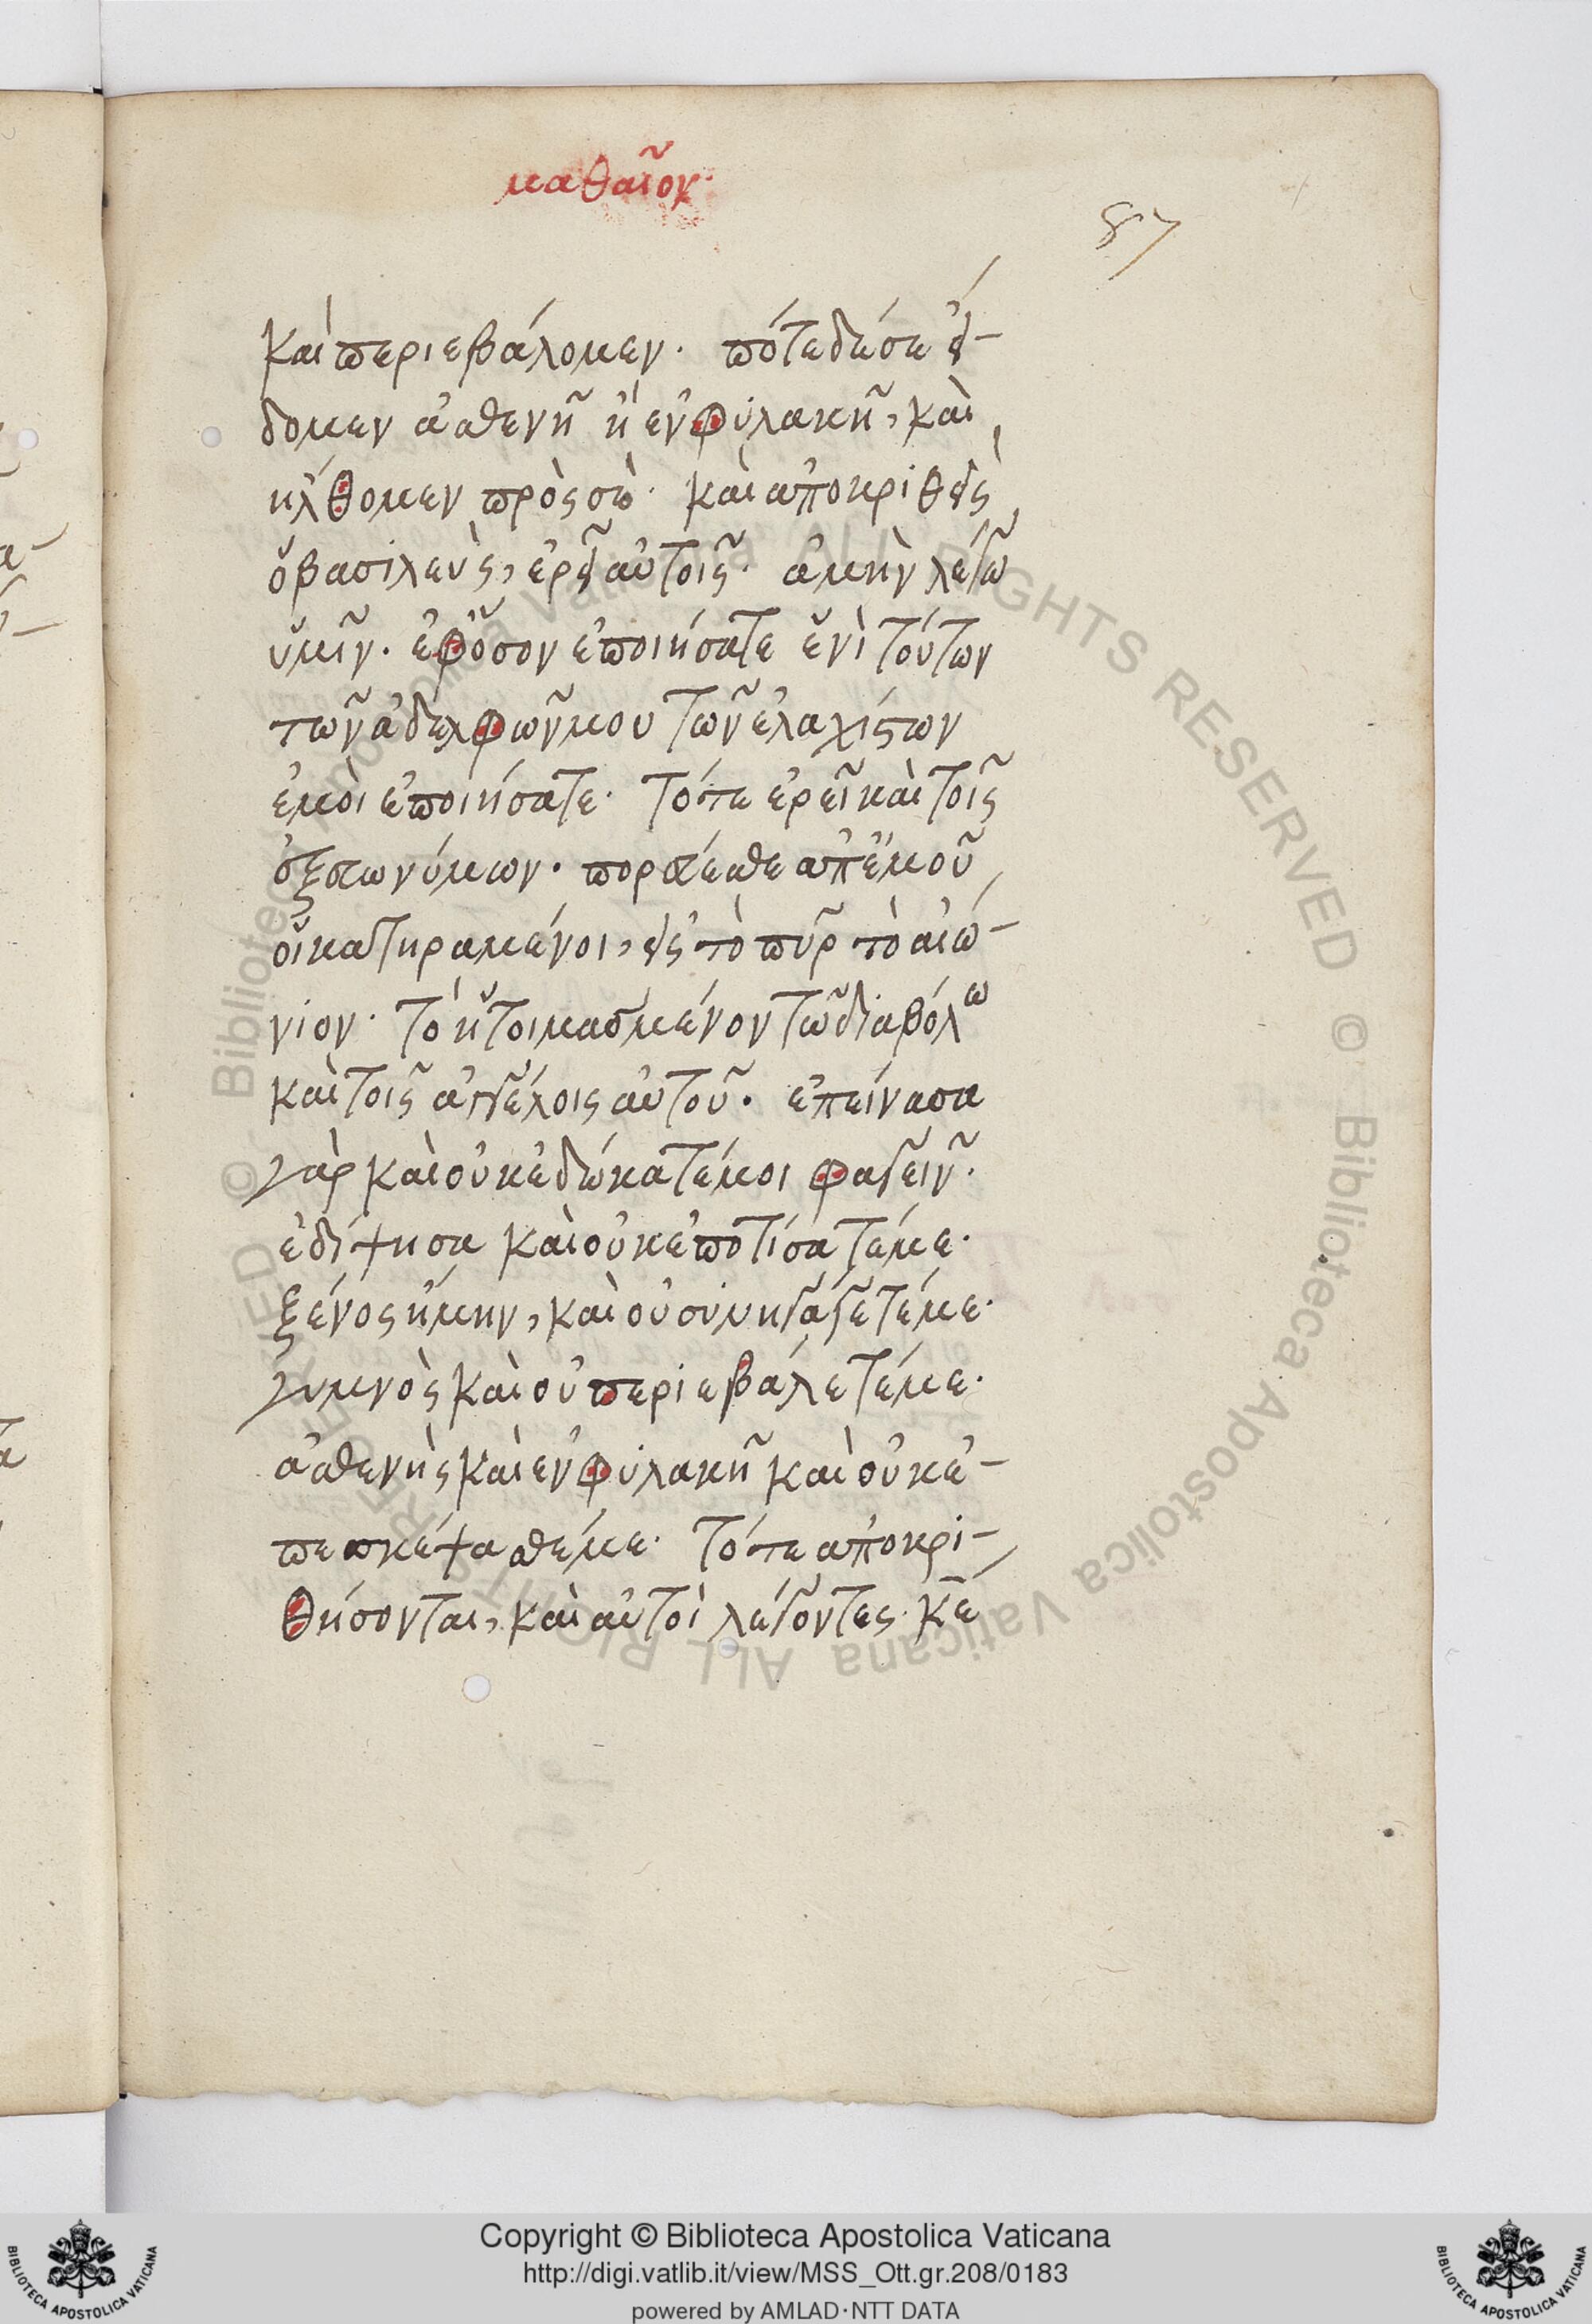 ματθαῖον·
87
καὶ περιεβάλομεν· πότε δέ σε εἴ-
δομεν ἀσθενῆ ἢ ἐν φυλακῆ, καὶ
ἤλθομεν πρὸς σὲ· καὶ ἀποκριθεὶς
ὁ βασιλεὺς, ἐρεῖ αὐτοῖς· ἀμὴν λέγω
ὑμῖν· ἐφ' ὅσον ἐποιήσατε ἑνὶ τούτων
τῶν ἀδελφῶν μου τῶν ἐλαχίστων
ἐμοὶ ἐποιήσατε· τότε ἐρεῖ καὶ τοῖς
ἐξ εὐωνύμων· πορεύεσθε ἀπ' ἐμοῦ
οἱ κατηραμένοι, εἰς τὸ πῦρ τὸ αἰώ-
νιον· τὸ ἡτοιμασμένον τῶ διαβόλω
καὶ τοῖς ἀγγέλοις αὐτοῦ· ἐπείνασα
γὰρ καὶ οὐκ ἐδώκατέ μοι φαγεῖν·
ἐδίψησα καὶ οὐκ ἐποτίσατέ με·
ξένος ἤμην, καὶ οὐ συνηγάγετέ με·
γυμνὸς καὶ οὐ περιεβάλετέ με·
ἀσθενὴς καὶ ἐν φυλακῆ καὶ οὐκ ἐ-
πεσκέψασθέ με· τότε ἀποκρι-
θήσονται, καὶ αὐτοὶ λέγοντες· κε
© Biblioteca Apostolica Vaticana ALL RIGHTS RESERVED © Biblioteca Apostolica Vaticana ALL RIGHTS RESERVED
Copyright © Biblioteca Apostolica Vaticana
http://digi.vatlib.it/view/MSS_Ott.gr.208/0183
powered by AMLAD·NTT DATA
BIBLIOTECA APOSTOLICA VATICANA
BIBLIOTECA APOSTOLICA VATICANA